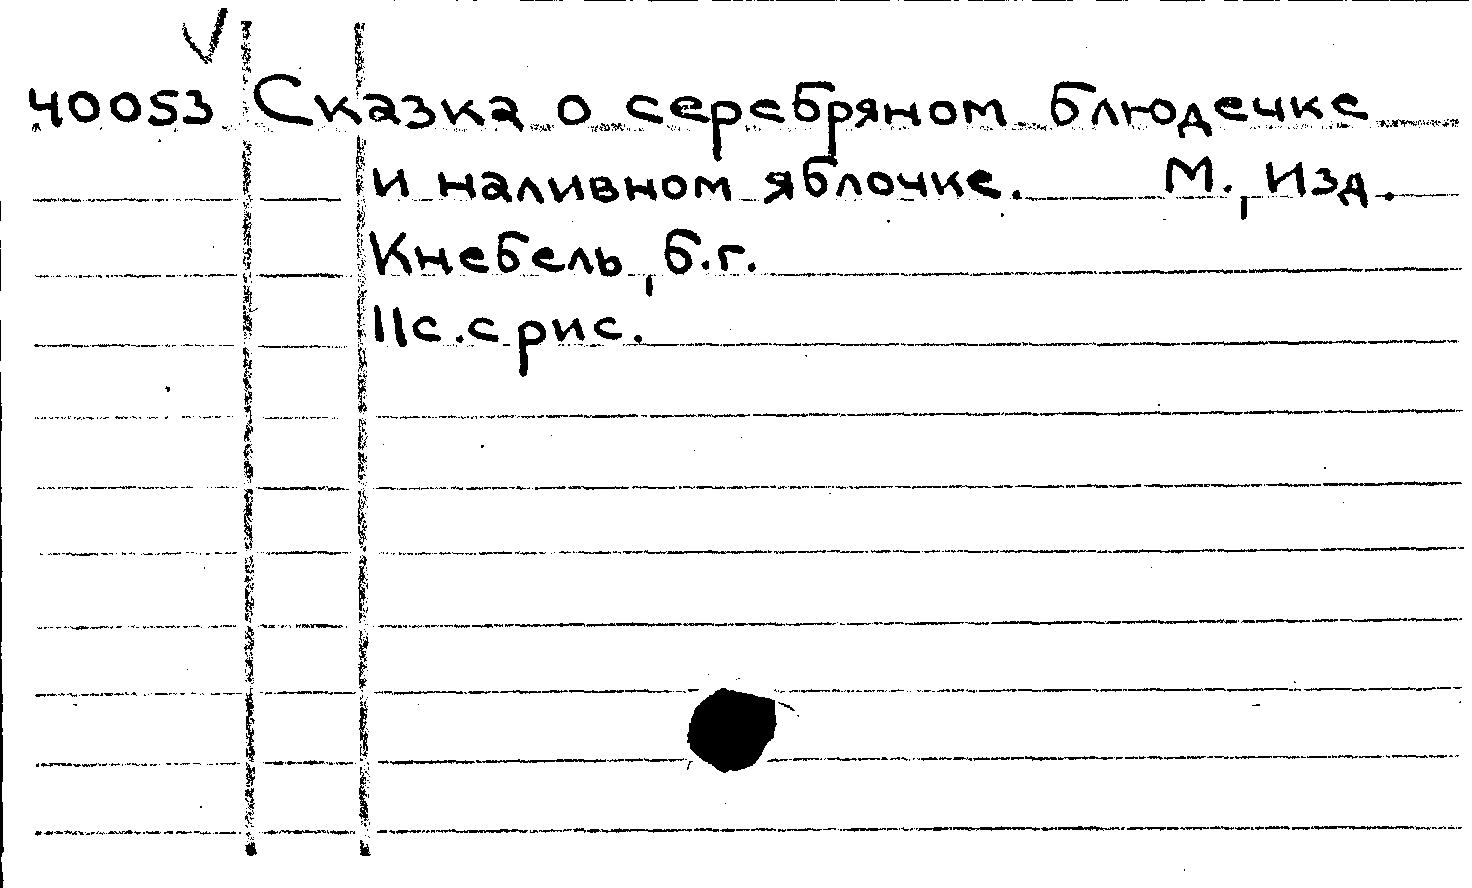 40053 Сказка о серебряном блюдечке
и наливном яблочке. М., Изд.
Кнебель, б.г.
11с. с рис.